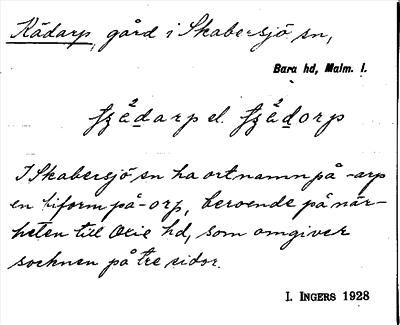 Kädarp, gård i Skabersjö sn,
Bara hd, Malm. l.
el.
I Skabersjö sn ha ortnamn på -arp
en biform på -orp, beroende på när-
heten till Oxie hd, som omgiver
socknen på tre sidor.
I. INGERS 1928